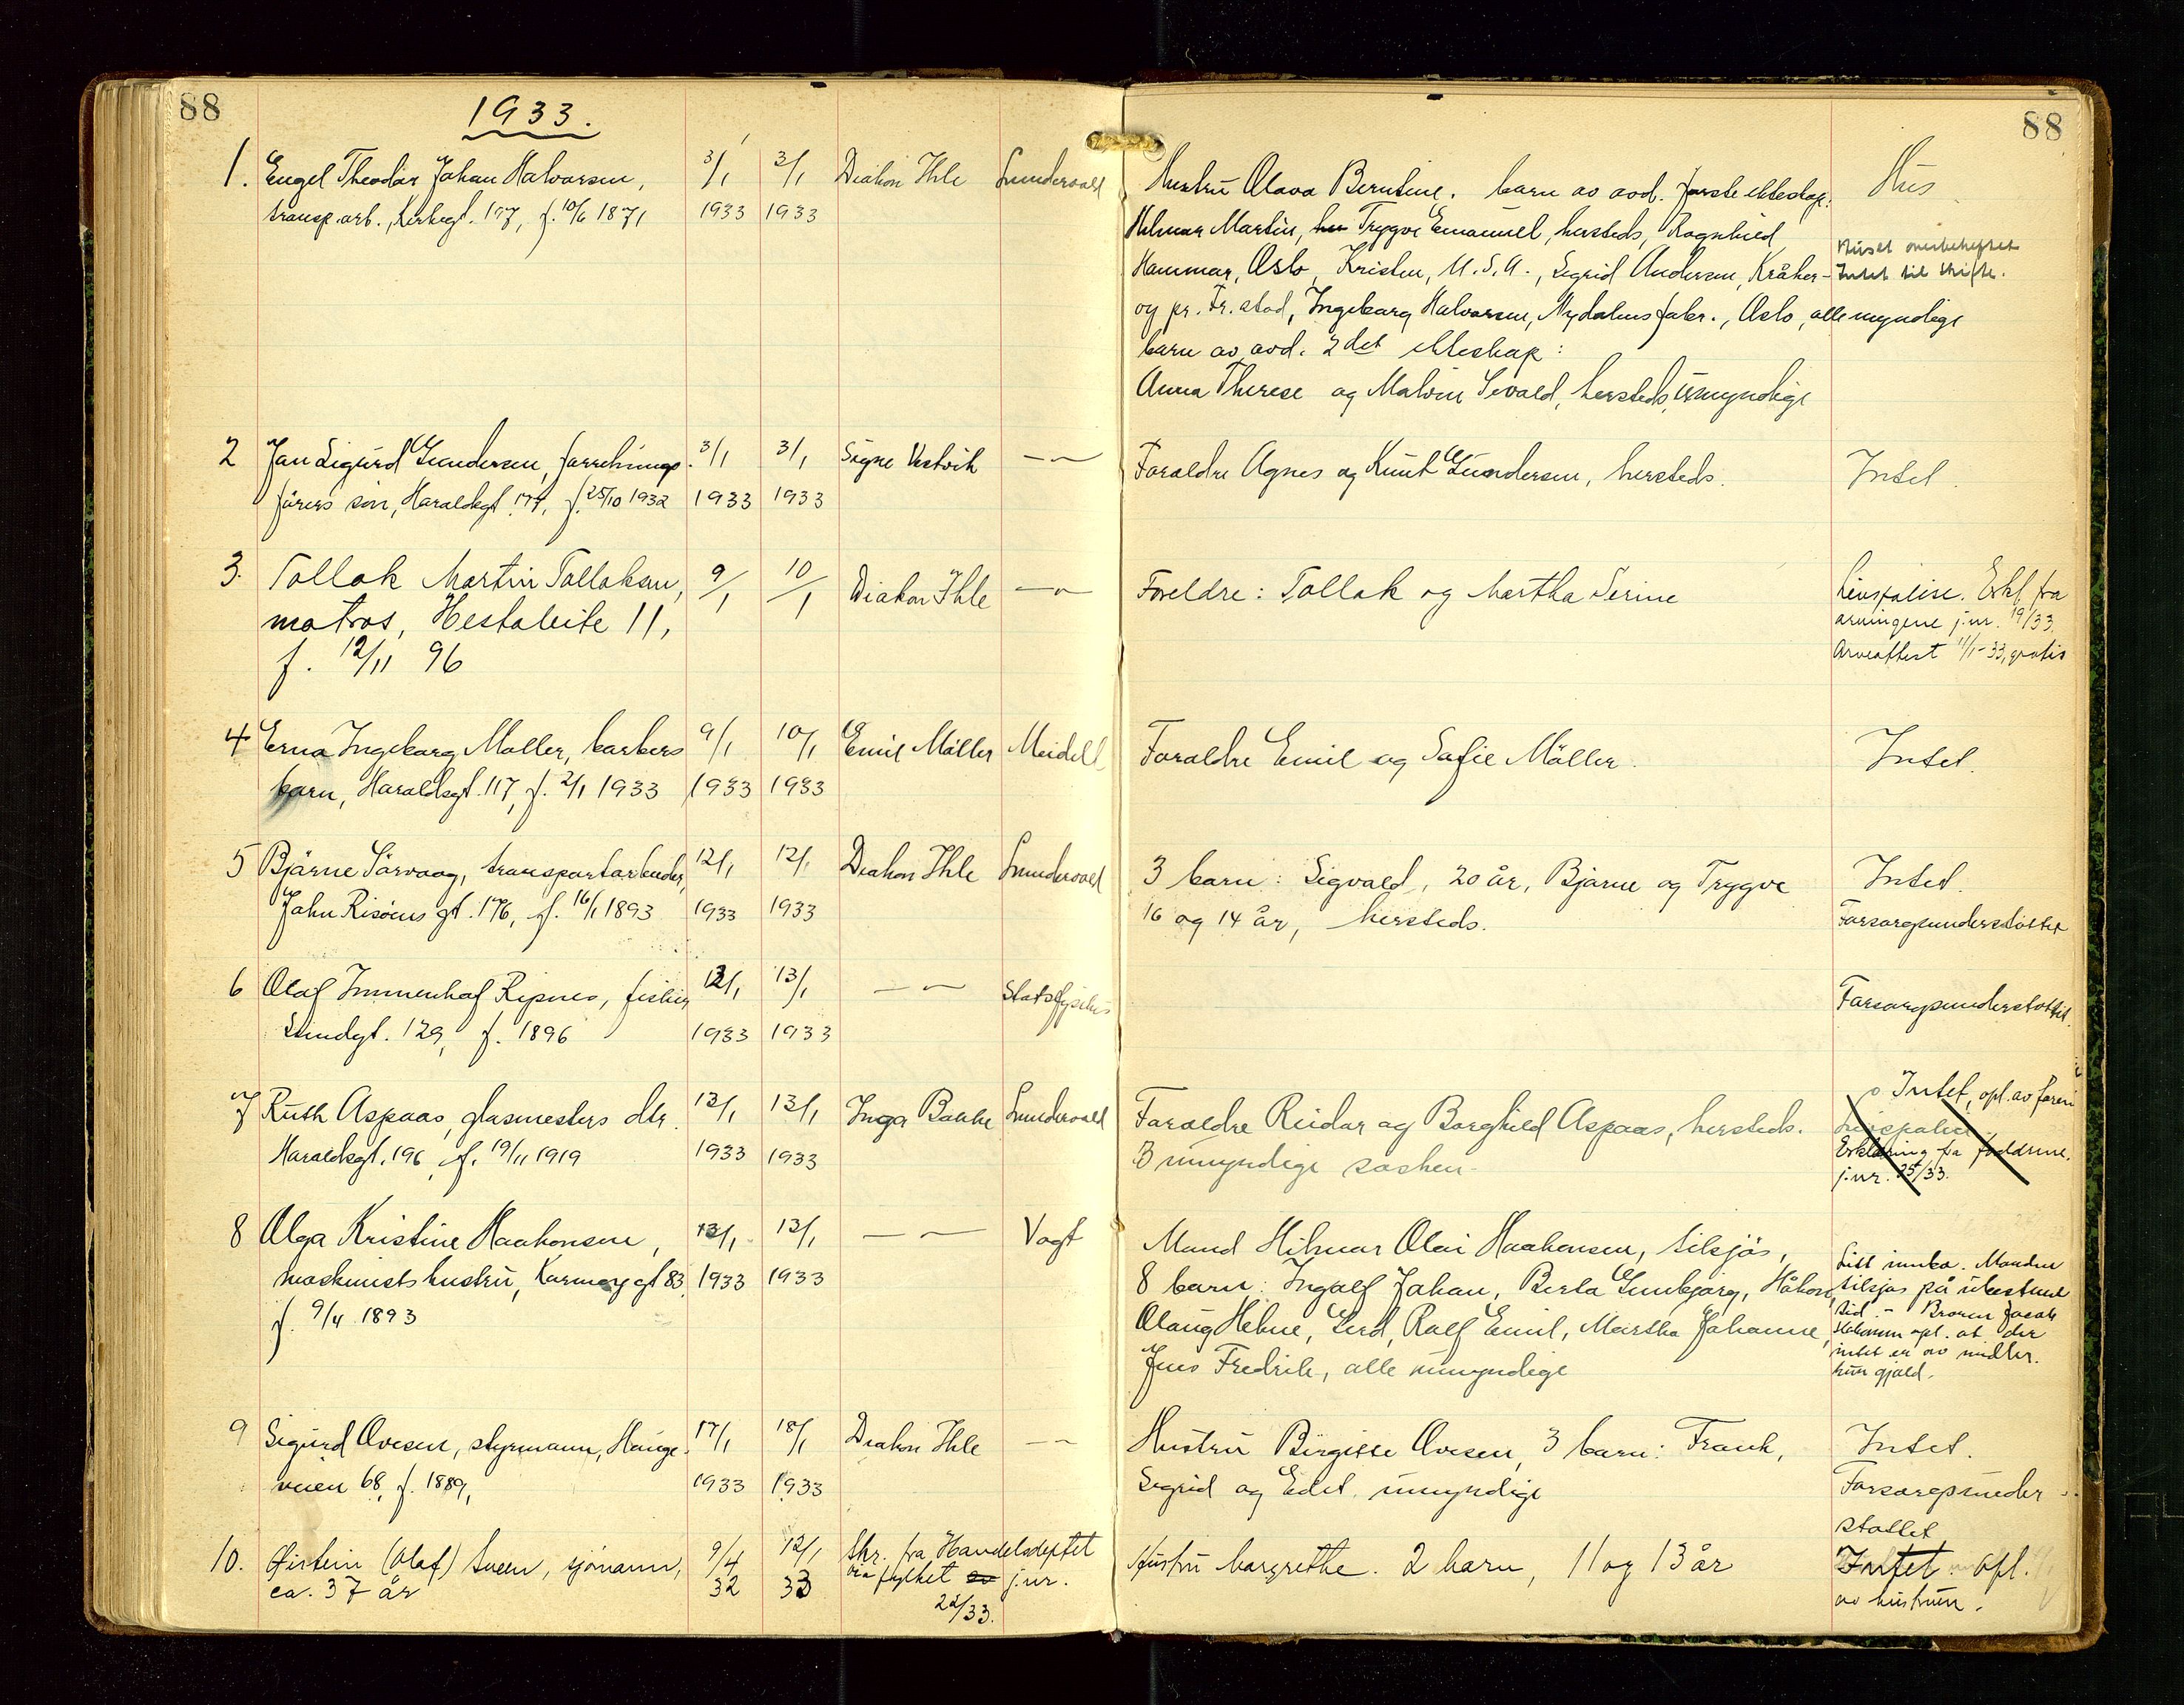 88
1933.
88
1. Engel Theodor Johan Halvorsen, 3/1 3/1 Diakon Ihle Sundersvall Hustru Olava Berntine, barn av avd. første ekteskap: Hus
transp. arb., Kirkegt. 197, f. 10/6 1871 1933 1933 Hilmar Martin, Trygve Emanuel, hersteds, Ragnhild
Huset overbeheftet
Hammar, Oslo, Kristen, U.S.A., Sigrid Andersen, Kråker- Intet til skifte.
og pr. Fr.stad, Ingeborg Halvorsen, Nydalens fabr., Oslo, alle myndige
barn av avd. 2det ekteskap:
Anna Therese og Malvin Sevald, hersteds, umyndige
2 Jan Sigurd Gundersen, forretnings- 3/1 3/1 Signe Vestvik — " — Foreldre Agnes og Knut Gundersen, hersteds. Intet.
førers søn, Haraldsgt. 177, f. 25/10 1932 1933 1933
3. Tollak Martin Tollaksen, 9/1 10/1 Diakon Ihle — " — Foreldre: Tollak og Martha Serine Livspolise. Erkl. fra
matros, Hestaleite 11, arvingene j.nr. 19/33.
f. 12/11 96 Arveattest 11/1-33, gratis
4 Erna Ingeborg Møller, barbers 9/1 10/1 Emil Møller Meidell Foreldre Emil og Sofie Møller. Intet.
barn, Haraldsgt. 117, f. 2/1 1933 1933 1933
5 Bjarne Sørvaag, transportarbeider, 12/1 12/1 Diakon Ihle Sundersvall 3 barn: Sigvald, 20 år, Bjarne og Trygve Intet.
John Risøens gt. 176, f. 16/1 1893 1933 1933 16 og 14 år, hersteds. Forsorgsunderstøttet
6 Olaf Immenhof Ripnes, fisker, 12/1 13/1 — " — Statsfysikus Forsorgsunderstøttet.
Sundgt. 129, f. 1896 1933 1933
7 Ruth Aspaas, glasmesters dtr. 13/1 13/1 Inga Bakke Sundersvall Foreldre Reidar og Borghild Aspaas, hersteds. Intet, opl. av faren
Haraldsgt. 196, f. 19/11 1919 1933 1933 3 umyndige søsken. Livspolise
Erklæring fra foreldrene.
j.nr. 25/33.
8 Olga Kristine Haakonsen, 13/1 13/1 — " — Vogt Mand Hilmar Olai Haakonsen, tilsjøs, Litt innbo. Manden
maskinists hustru, Karmøygt 83, 1933 1933 8 barn: Ingolf Johan, Berta Gunbjørg, Håkon, tilsjøs på ubestemt
f. 9/4 1893 Olaug Helene, Gerd, Rolf Emil, Martha Johanne, tid - Broren Jacob
Jens Fredrik, alle umyndige Håkonsen opl. at der
intet er av midler.
kun gjæld.
9 Sigurd Ovesen, styrmann, Hauge- 17/1 18/1 Diakon Ihle — " — Hustru Birgitte Ovesen, 3 barn: Frank, Intet.
veien 68, f. 1889, 1933 1933 Sigrid og Edet, umyndige Forsorgsunder-
støttet
10. Øistein (Olaf) Sveen, sjømann, 9/4 12/1 Skr. fra Handelsdeptet Hustru Margrethe. 2 barn, 11 og 13 år Intet. opl.
ca. 37 år 32 33 via fylket av j.nr. av hustruen.
22/33.